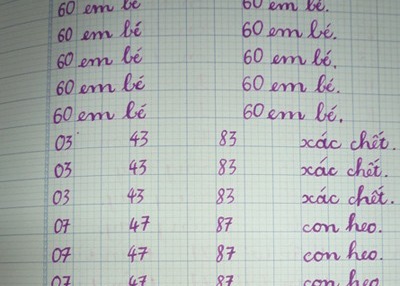 60 em bé 60 em bé.
60 em bé 60 em bé.
60 em bé 60 em bé.
60 em bé 60 em bé.
60 em bé 60 em bé.
03 43 83 xác chết.
03 43 83 xác chết.
03 43 83 xác chết.
07 47 87 con heo.
07 47 87 con heo.
07 47 87 con heo